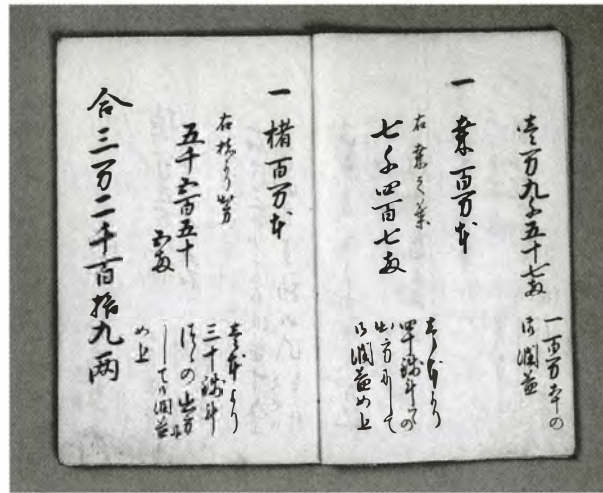 壱万九千五十七両
一百万本の
御潤益
一 桑百万本
右桑之葉
七千四百七両
壱本より
四十銭斗りの
出方にして
御潤益如上
一 楮百万本
右楮より出方
五千六百五十
五両
壱本より
三十銭斗
づつの出方に
して御潤益
如上
合三万二千百拾九両